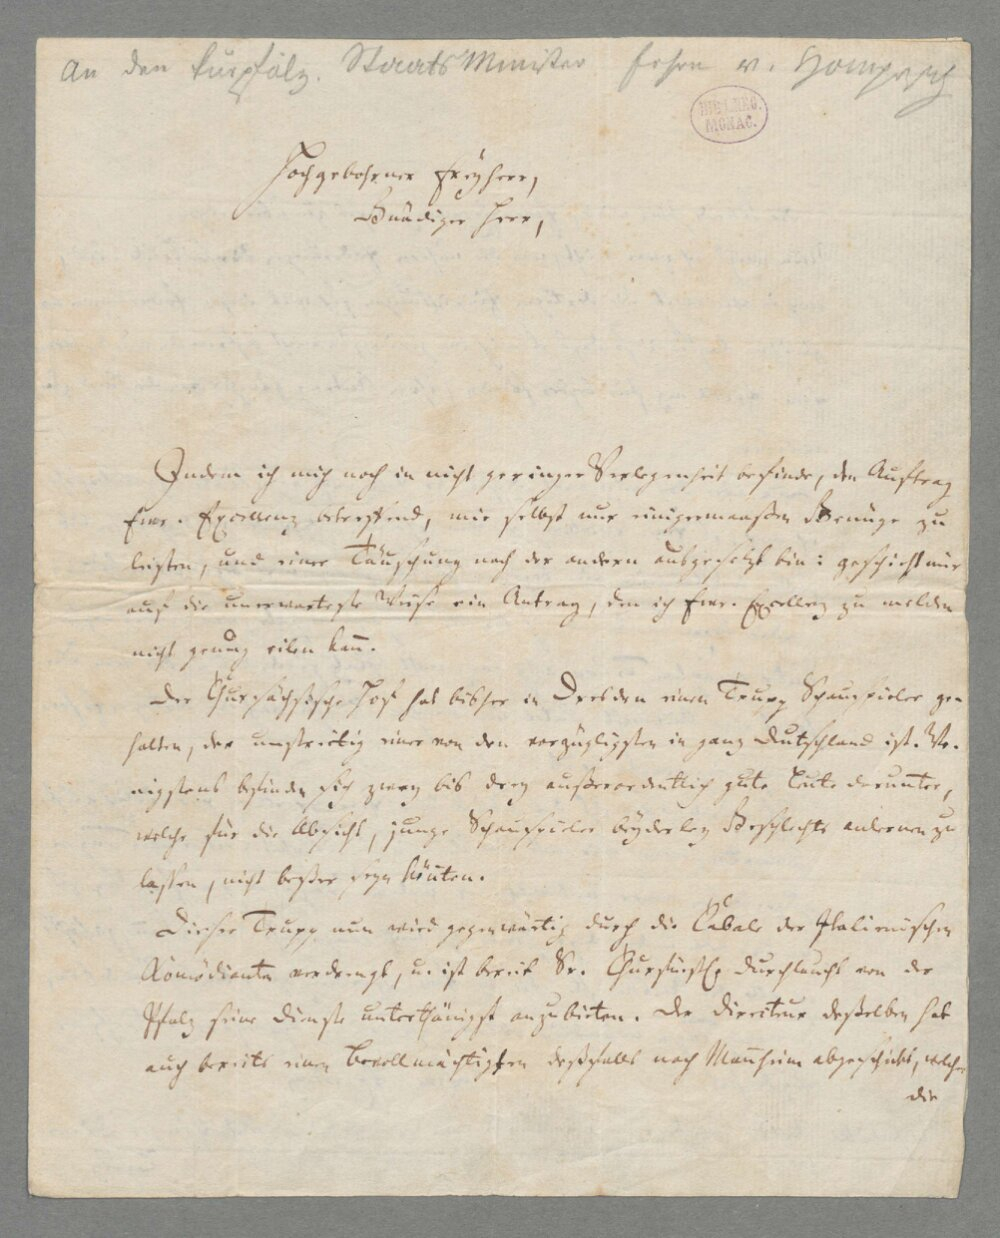 An den kurpfälz. Staats Minister Frhrn v. Hompesch
BIBL. REG.
MONAC.
Hochgebohrner Freyherr,
Gnädiger Herr,
Indem ich mich noch in nicht geringer Verlegenheit befinde, den Auftrag
Ewr. Excellenz betreffend, mir selbst nur einigermaaßen Genüge zu
leisten, und einer Täuschung nach der andern ausgesetzt bin: geschieht mir
auf die unerwarteste Weise ein Antrag, den ich Ewr. Excellenz zu melden
nicht genung eilen kañ.
Der Chursächsische Hof hat bisher in Dresden einen Trupp Schauspieler ge-
halten, der unstreitig einer von den vorzüglichsten in ganz Deutschland ist. We-
nigstens befinden sich zwey bis drey außerordentlich gute Leute darunter,
welche für die Absicht, junge Schauspieler beyderley Geschlechts anlernen zu
lassen, nicht besser seyn köñten.
Dieser Trupp nun wird gegenwärtig durch die Cabale der Italienischen
Komödianten verdrengt, u. ist bereit Sr. Churfürstl. Durchlaucht von der
Pfalz seine Dienste unterthänigst anzubieten. Der Directeur desselben hat
auch bereits einen Bevollmächtigten desfalls nach Mañheim abgeschickt, welcher
die